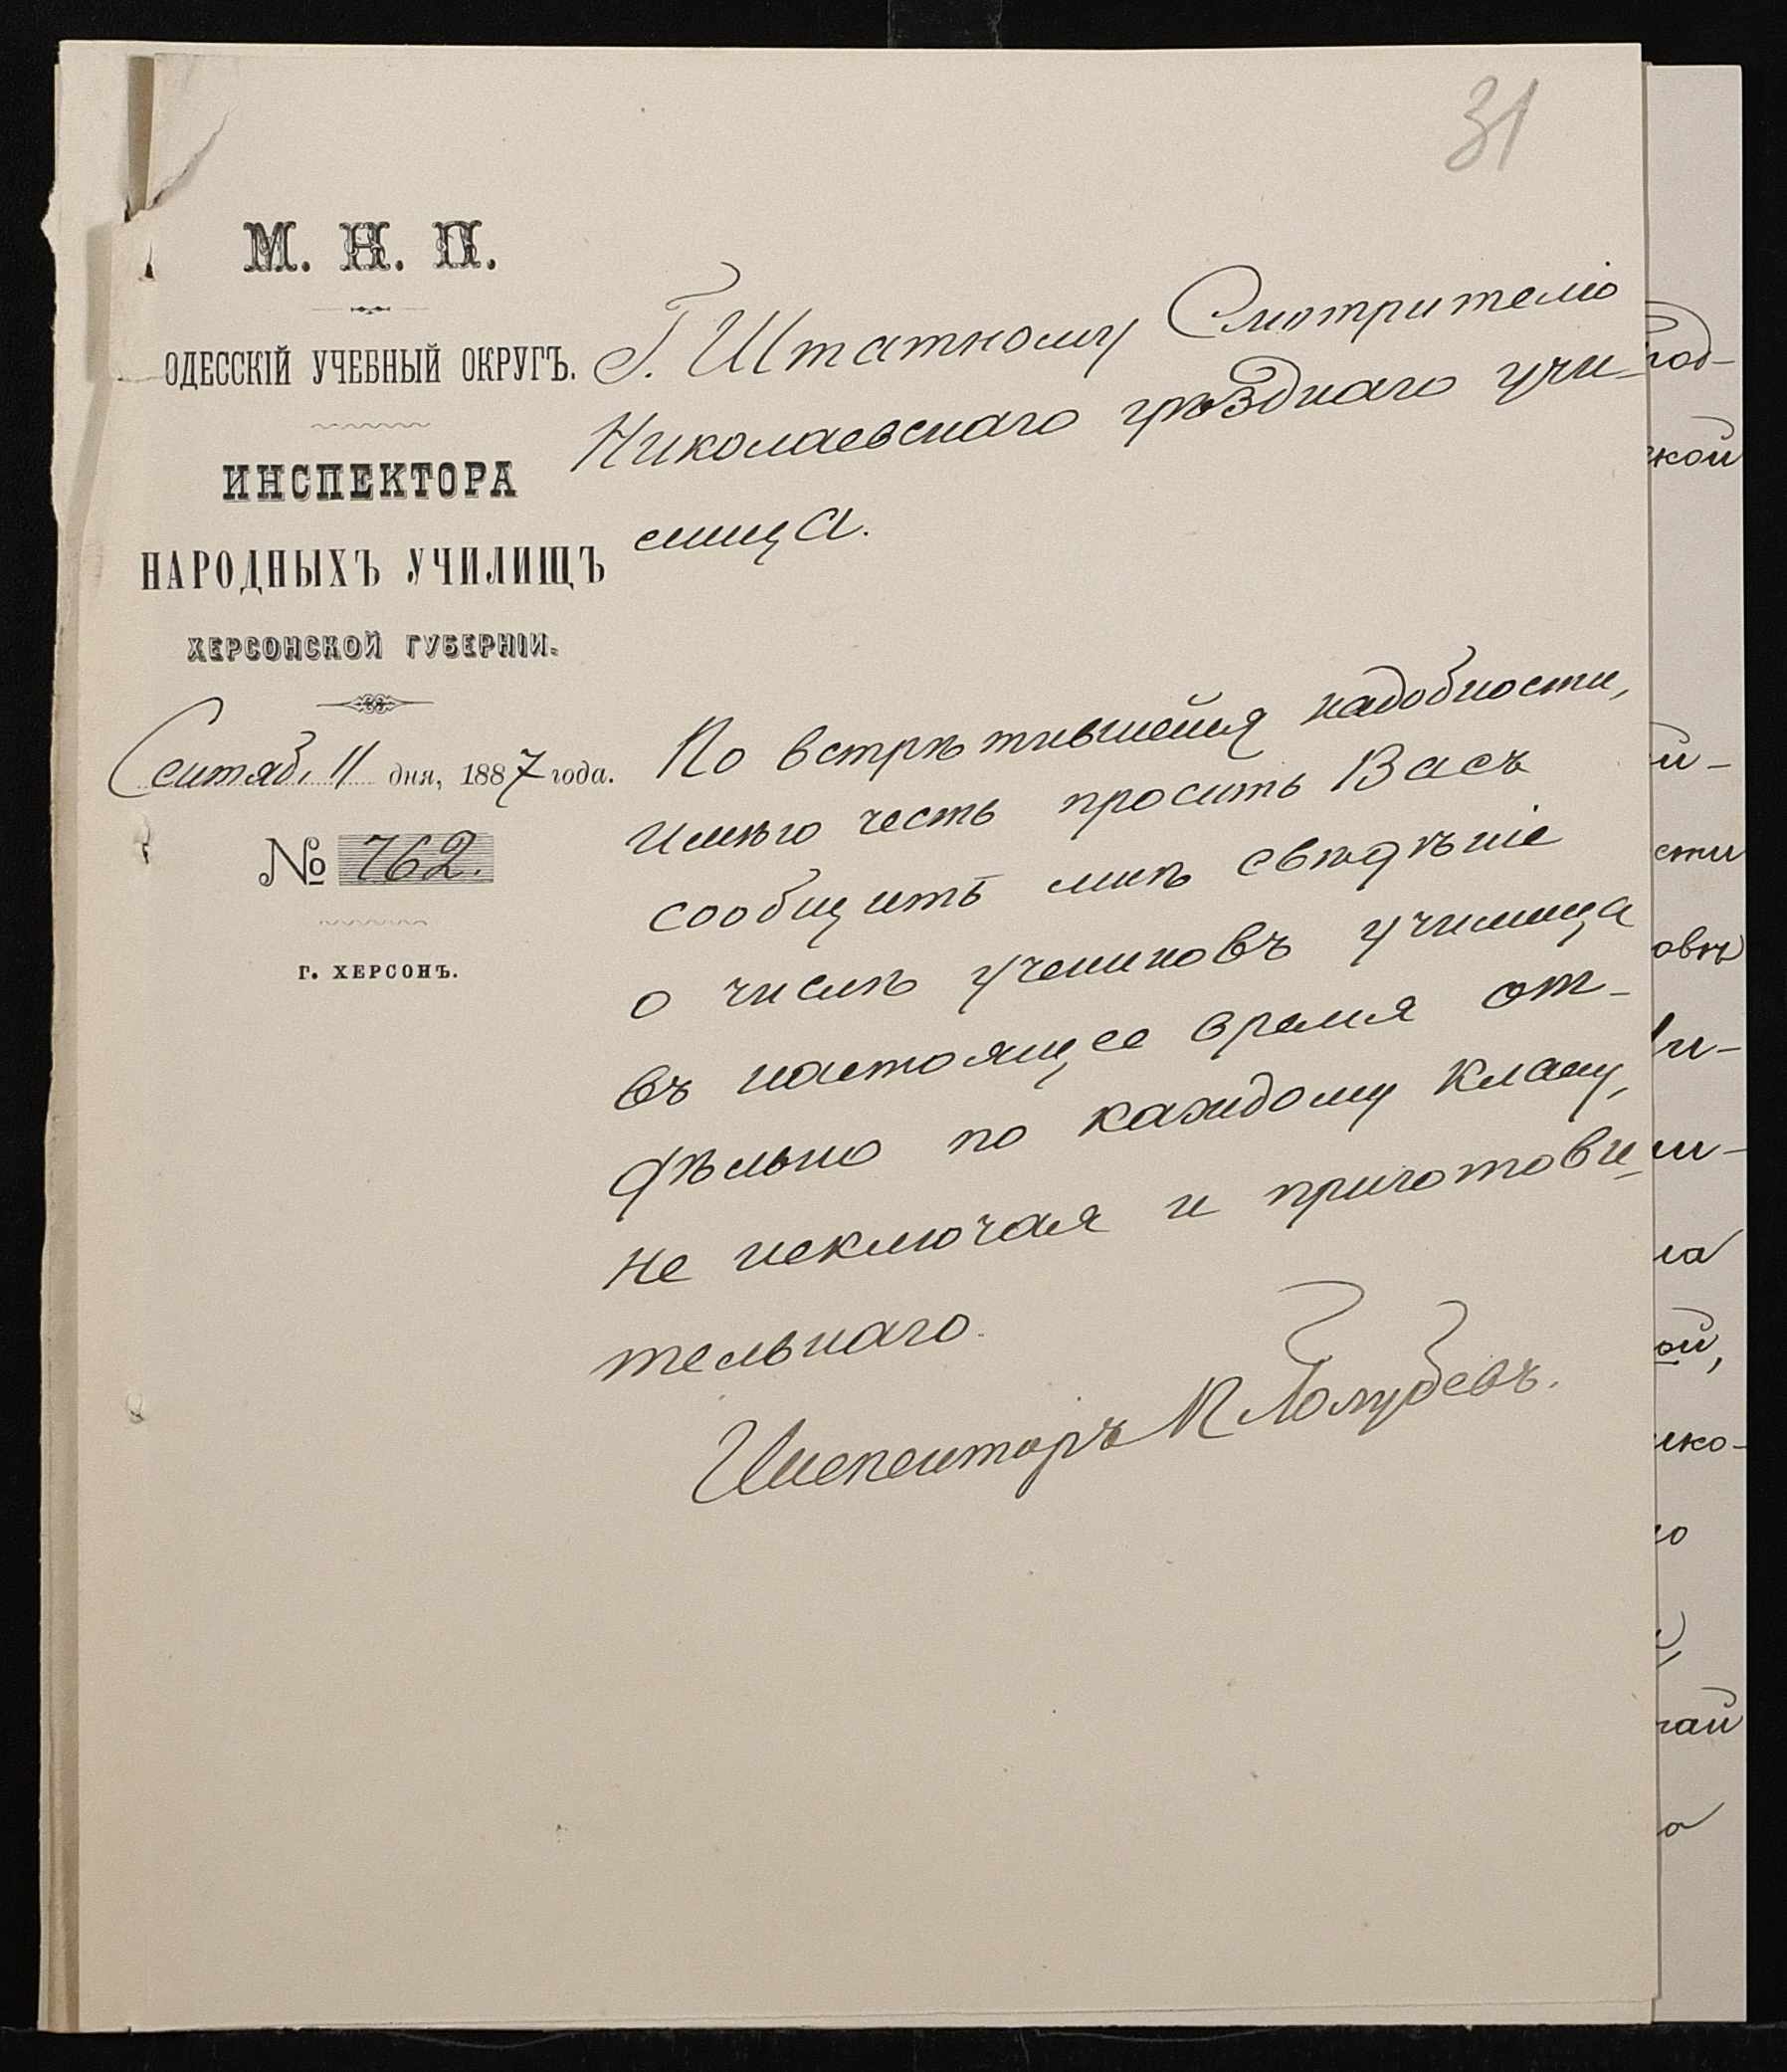 31
М. Н. П.
ОДЕССКІЙ УЧЕБНЫЙ ОКРУГЪ.
ИНСПЕКТОРА
НАРОДНЫХЪ УЧИЛИЩЪ
ХЕРСОНСКОЙ ГУБЕРНІИ.
Сентяб. 11 дня, 1887 года.
№ 762.
Г. ХЕРСОНЪ.
Г. Штатному Смотрителю
Николаевскаго уѣзднаго учи-
лища.
По встрѣтившейся надобности,
имѣю честь просить Васъ
сообщить мнѣ свѣдѣніе
о числѣ учениковъ училища
въ настоящее время от-
дѣльно по каждому классу,
не исключая и приготови-
тельнаго.
Инспекторъ П Голубевъ.